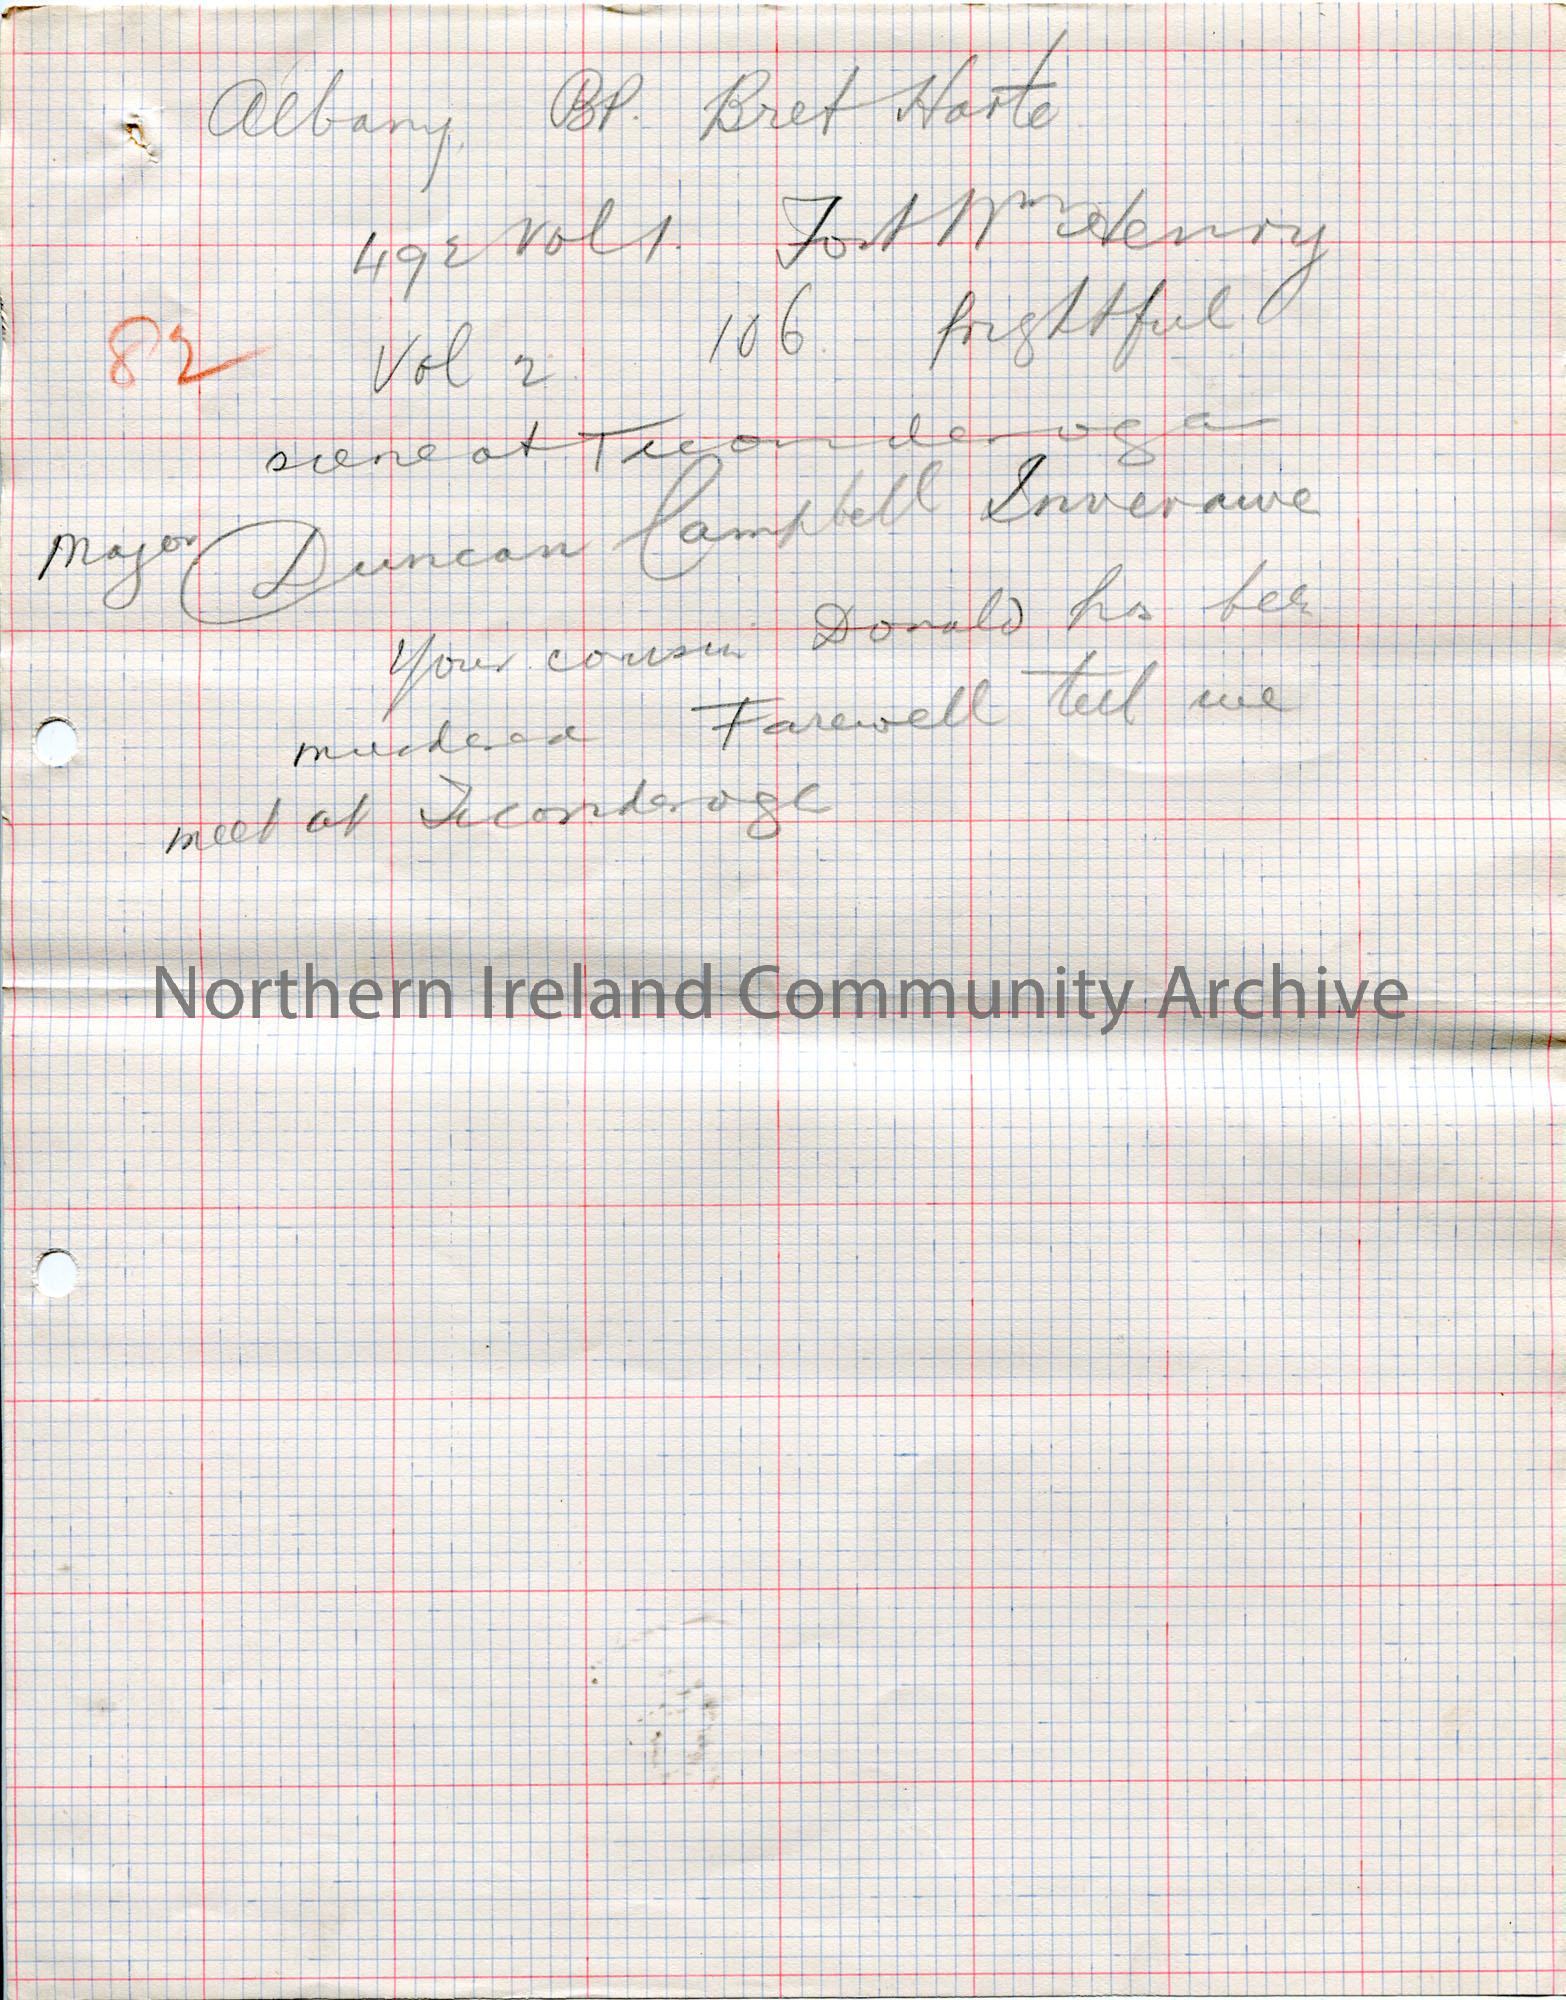 Albany. BP. Bret Harte
492 Vol 1. Fort Wm Henry
82 Vol 2 106 frightful
scene at Ticonderoga
Major Duncan Campbell Inverawe
Your cousin Donald has been
murdered Farewell till we
meet at Ticonderoga
Northern Ireland Community Archive